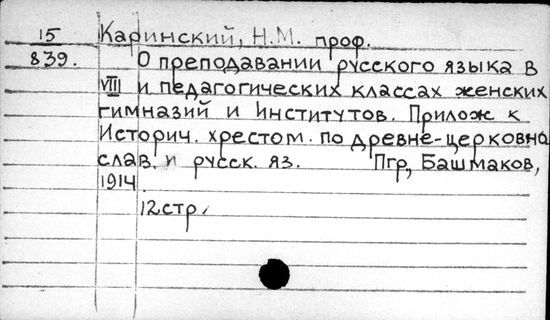 15 Каринский, Н.М. проф.
839. О преподавании русского языка в
VIII и педагогических классах женских
гимназий и институтов. Прилож к
Историч. хрестом. по древне-церковно
слав. и русск. яз. Пгр, Башмаков,
1914.
12стр.